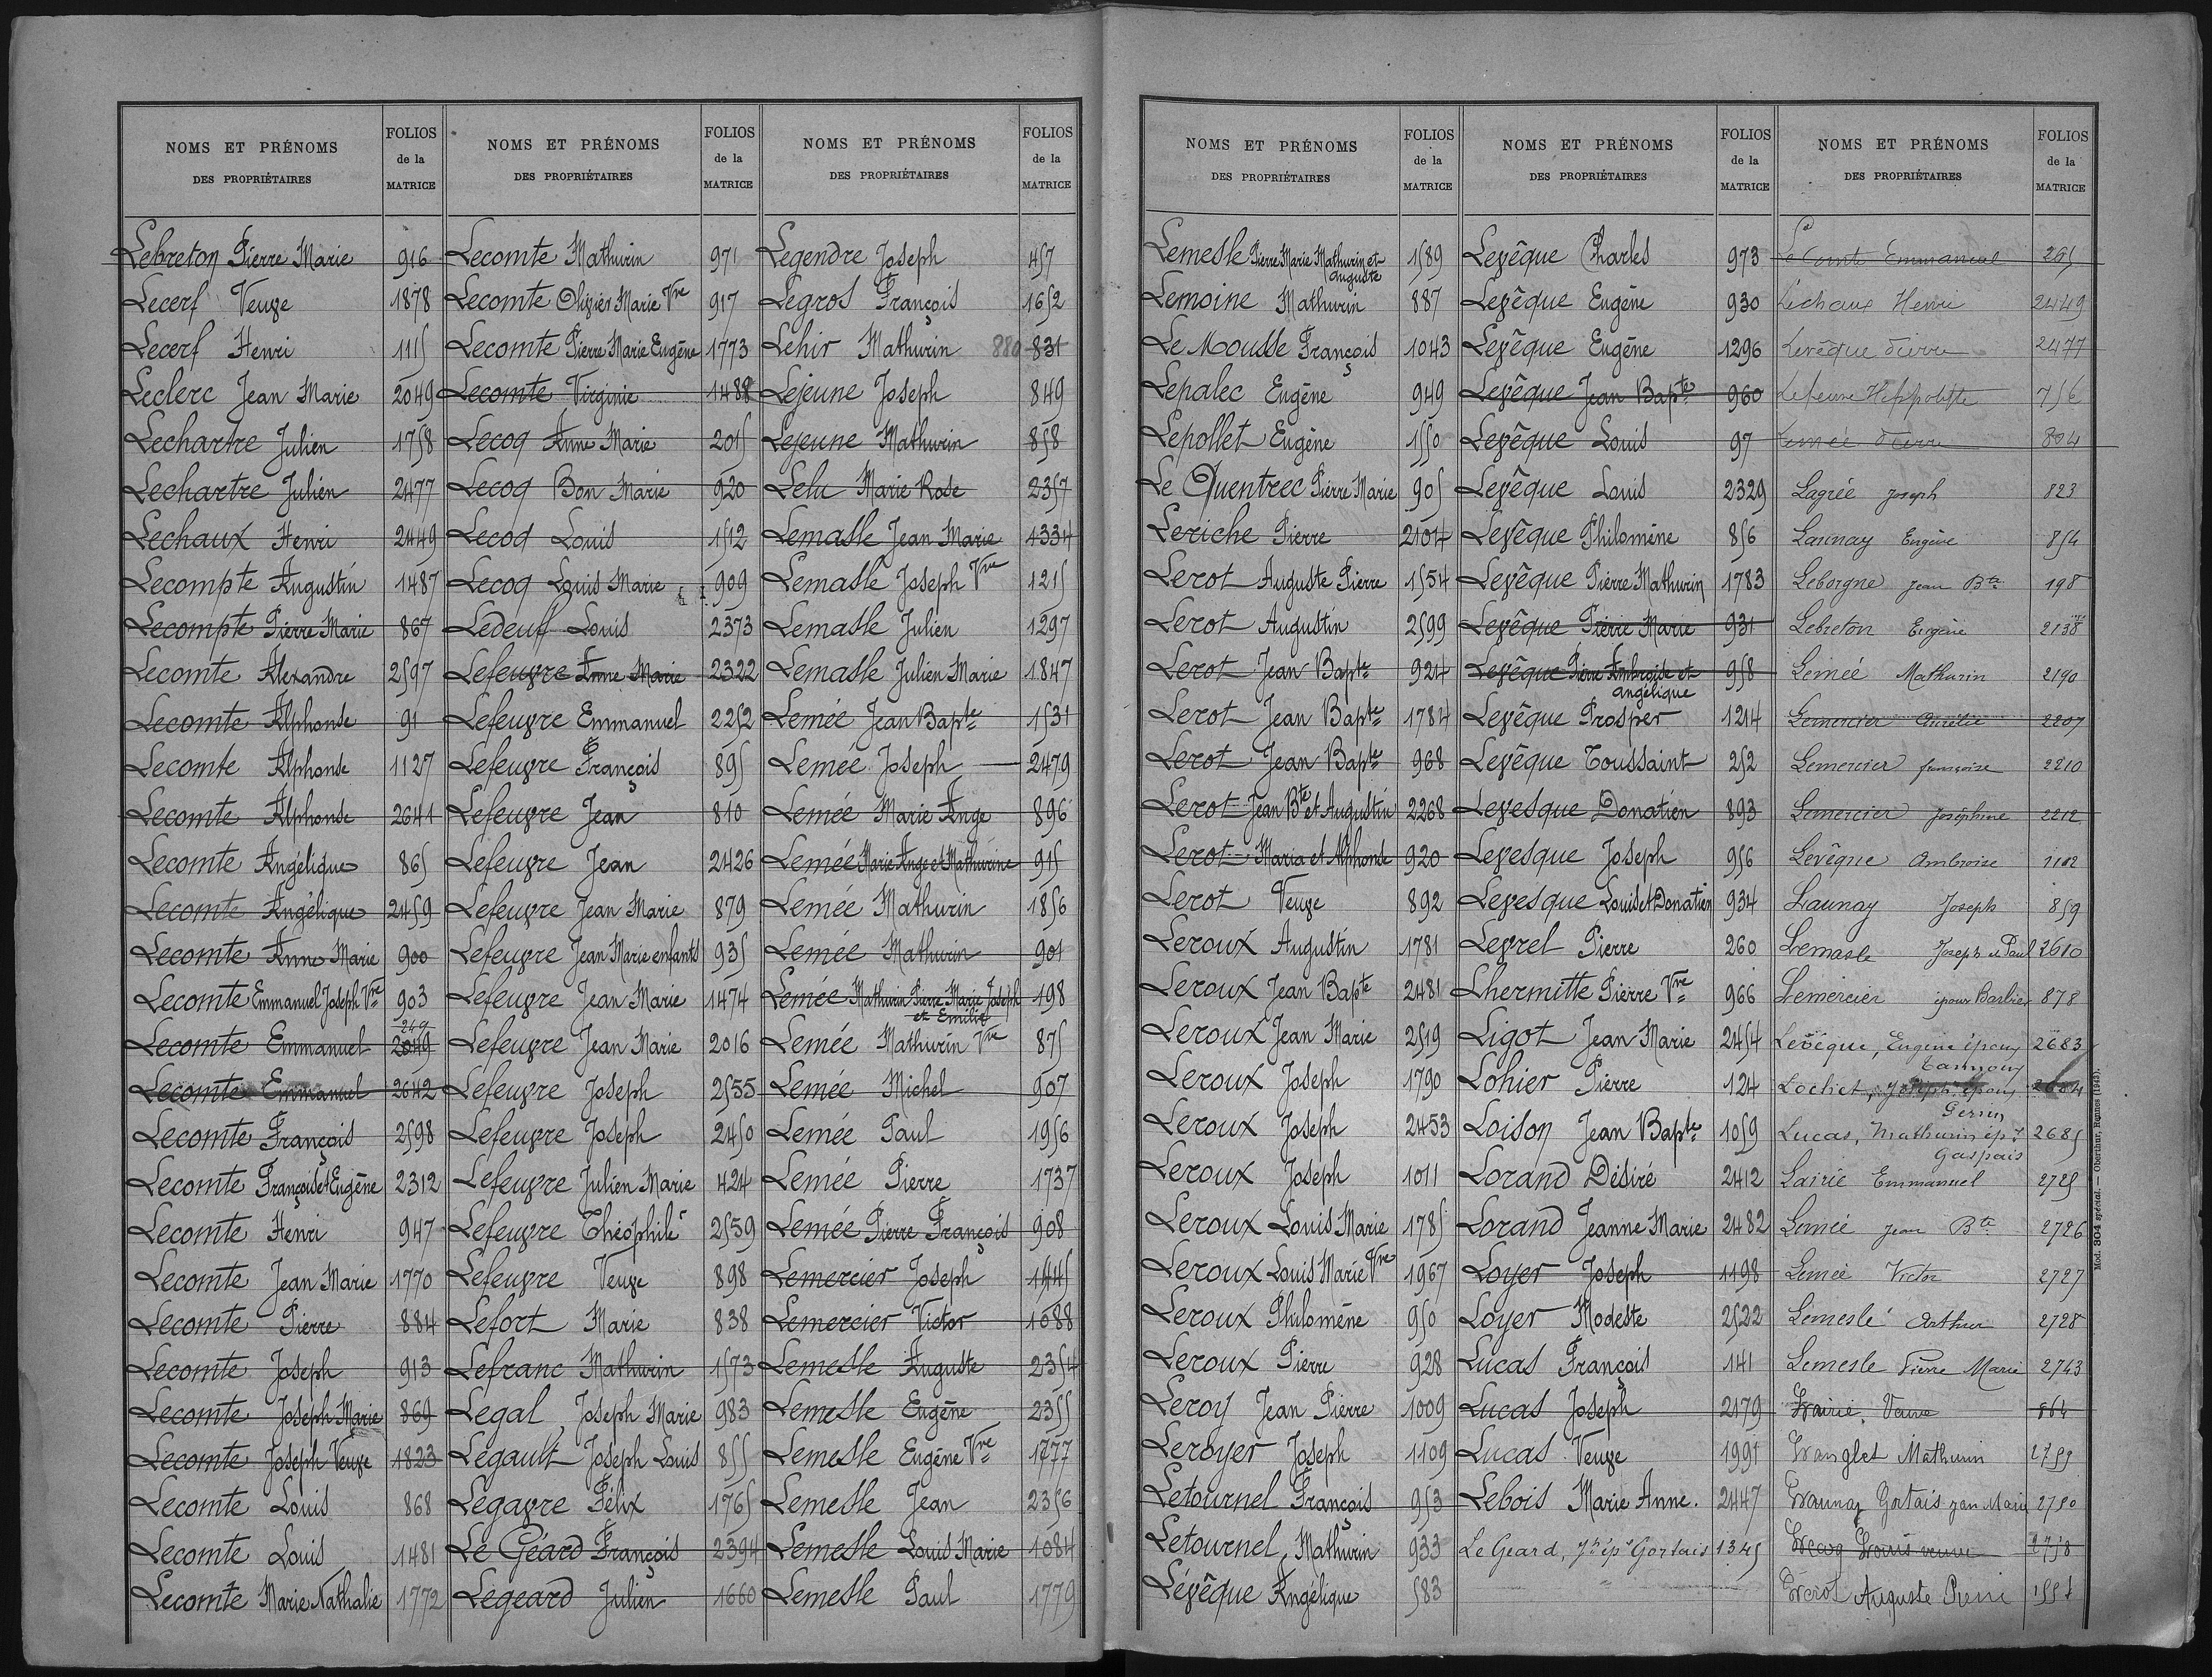 NOMS ET PRÉNOMS DES PROPRIÉTAIRES
FOLIOS de la MATRICE
Lebreton Pierre Marie 916
Lecerf Veuve 1878
Lecerf Henri 1115
Leclerc Jean Marie 2049
Lechartre Julien 1758
Lechartre Julien 2477
Lechaux Henri 2449
Lecompte Augustin 1487
Lecompte Pierre Marie 867
Lecomte Alexandre 2597
Lecomte Alphonse 91
Lecomte Alphonse 1127
Lecomte Alphonse 2641
Lecomte Angélique 865
Lecomte Angélique 2459
Lecomte Anne Marie 900
Lecomte Emmanuel Joseph Vve 903
249
Lecomte Emmanuel 2049
Lecomte Emmanuel 2642
Lecomte François 2598
Lecomte François et Eugène 2312
Lecomte Henri 947
Lecomte Jean Marie 1770
Lecomte Pierre 884
Lecomte Joseph 913
Lecomte Joseph Marie 869
Lecomte Joseph Veuve 1823
Lecomte Louis 868
Lecomte Louis 1481
Lecomte Marie Nathalie 1772
NOMS ET PRÉNOMS DES PROPRIÉTAIRES
FOLIOS de la MATRICE
Lecomte Mathurin 971
Lecomte Olivier Marie Vve 917
Lecomte Pierre Marie Eugène 1773
Lecomte Virginie 1488
Lecoq Anne Marie 2015
Lecoq Bon Marie 920
Lecoq Louis 1512
Lecoq Louis Marie 909
Ledeuf Louis 2373
Lefeuvre Anne Marie 2322
Lefeuvre Emmanuel 2252
Lefeuvre François 895
Lefeuvre Jean 810
Lefeuvre Jean 2426
Lefeuvre Jean Marie 879
Lefeuvre Jean Marie enfants 935
Lefeuvre Jean Marie 1474
Lefeuvre Jean Marie 2016
Lefeuvre Joseph 2555
Lefeuvre Joseph 2450
Lefeuvre Julien Marie 424
Lefeuvre Théophile 2559
Lefeuvre Veuve 898
Lefort Marie 838
Lefranc Mathurin 1573
Legal Joseph Marie 983
Legault Joseph Louis 855
Legavre Félix 1765
Le Géard François 2394
Legeard Julien 1660
NOMS ET PRÉNOMS DES PROPRIÉTAIRES
FOLIOS de la MATRICE
Legendre Joseph 457
Legros François 1652
Lehir Mathurin 880 831
Lejeune Joseph 849
Lejeune Mathurin 858
Lelu Marie Rose 2357
Lemasle Jean Marie 1334
Lemasle Joseph Vve 1215
Lemasle Julien 1297
Lemasle Julien Marie 1847
Lemée Jean Bapte 1531
Lemée Joseph 2479
Lemée Marie Ange 896
Lemée Marie Ange et Mathurine 915
Lemée Mathurin 1856
Lemée Mathurin 901
Lemée Mathurin Pierre Marie Joseph 198
et Emilie
Lemée Mathurin Vve 875
Lemée Michel 907
Lemée Paul 1956
Lemée Pierre 1737
Lemée Pierre François 908
Lemercier Joseph 1445
Lemercier Victor 1088
Lemesle Auguste 2354
Lemesle Eugène 2355
Lemesle Eugène Vve 1777
Lemesle Jean 2356
Lemesle Louis Marie 1084
Lemesle Paul 1779
NOMS ET PRÉNOMS DES PROPRIÉTAIRES
FOLIOS de la MATRICE
Lemesle Pierre Marie Mathurin et 1589
Auguste
Lemoine Mathurin 887
Le Mousse François 1043
Lepalec Eugène 949
Lepollet Eugène 1550
Le Quentrec Pierre Marie 905
Leriche Pierre 2104
Lerot Auguste Pierre 1554
Lerot Augustin 2599
Lerot Jean Bapte 924
Lerot Jean Bapte 1784
Lerot Jean Bapte 968
Lerot Jean Bte et Augustin 2268
Lerot Maria et Alphonse 920
Lerot Veuve 892
Leroux Augustin 1781
Leroux Jean Bapte 2481
Leroux Jean Marie 2519
Leroux Joseph 1790
Leroux Joseph 2453
Leroux Joseph 1011
Leroux Louis Marie 1785
Leroux Louis Marie Vve 1967
Leroux Philomène 950
Leroux Pierre 928
Leroy Jean Pierre 1009
Leroyer Joseph 1109
Letournel François 953
Letournel Mathurin 933
Lévêque Angélique 583
NOMS ET PRÉNOMS DES PROPRIÉTAIRES
FOLIOS de la MATRICE
Levêque Charles 973
Levêque Eugène 930
Levêque Eugène 1296
Levêque Jean Bapte 960
Levêque Louis 97
Levêque Louis 2329
Levêque Philomène 856
Levêque Pierre Mathurin 1783
Levêque Pierre Marie 931
Levêque Pierre Ambroise et 958
angélique
Levêque Prosper 1214
Levêque Toussaint 252
Levesque Donatien 893
Levesque Joseph 956
Levesque Louis et Donatien 934
Levrel Pierre 260
Lhermitte Pierre Vve 966
Ligot Jean Marie 2454
Lohier Pierre 124
Loison Jean Bapte 1059
Lorand Désiré 2412
Lorand Jeanne Marie 2482
Loyer Joseph 1198
Loyer Modeste 2522
Lucas François 141
Lucas Joseph 2179
Lucas Veuve 1991
Lebois Marie Anne. 2447
Le Geard, Jh ép. Gortais 1345
NOMS ET PRÉNOMS DES PROPRIÉTAIRES
FOLIOS de la MATRICE
Le Comte Emmanuel 265
Lechaux Henri 2449
Levêque Pierre 2477
Lefeuvre Hippolyte 756
Lemée Pierre 804
Lagrée Joseph 823
Launay Eugène 854
Leborgne Jean Bte 198
Lebreton Eugène 2138
Lemée Mathurin 2190
Lemercier Aurélie 2207
Lemercier françoise 2210
Lemercier Joséphine 2212
Levêque Ambroise
Launay Joseph 859
Lemasle Joseph et Paul 2610
Lemercier épour Barbier 878
Levêque, Eugène époux 2683
Lochet, Joseph époux
Lucas, Mathurin ép. 2685
Gaspais
Lairie Emmanuel 2725
Lemée Jean Bte 2726
Lemée Victor 2727
Lemesle Arthur 2728
Lemesle Pierre Marie 2743
Lairie Veuve 864
Langlet Mathurin 2755
Launay Gortais Jean Marie 2750
Lecoq Louis veuve 2758
Lerot Auguste Pierre 1554
Mod. 304 spécial. — Oberthur, Rennes (1943).